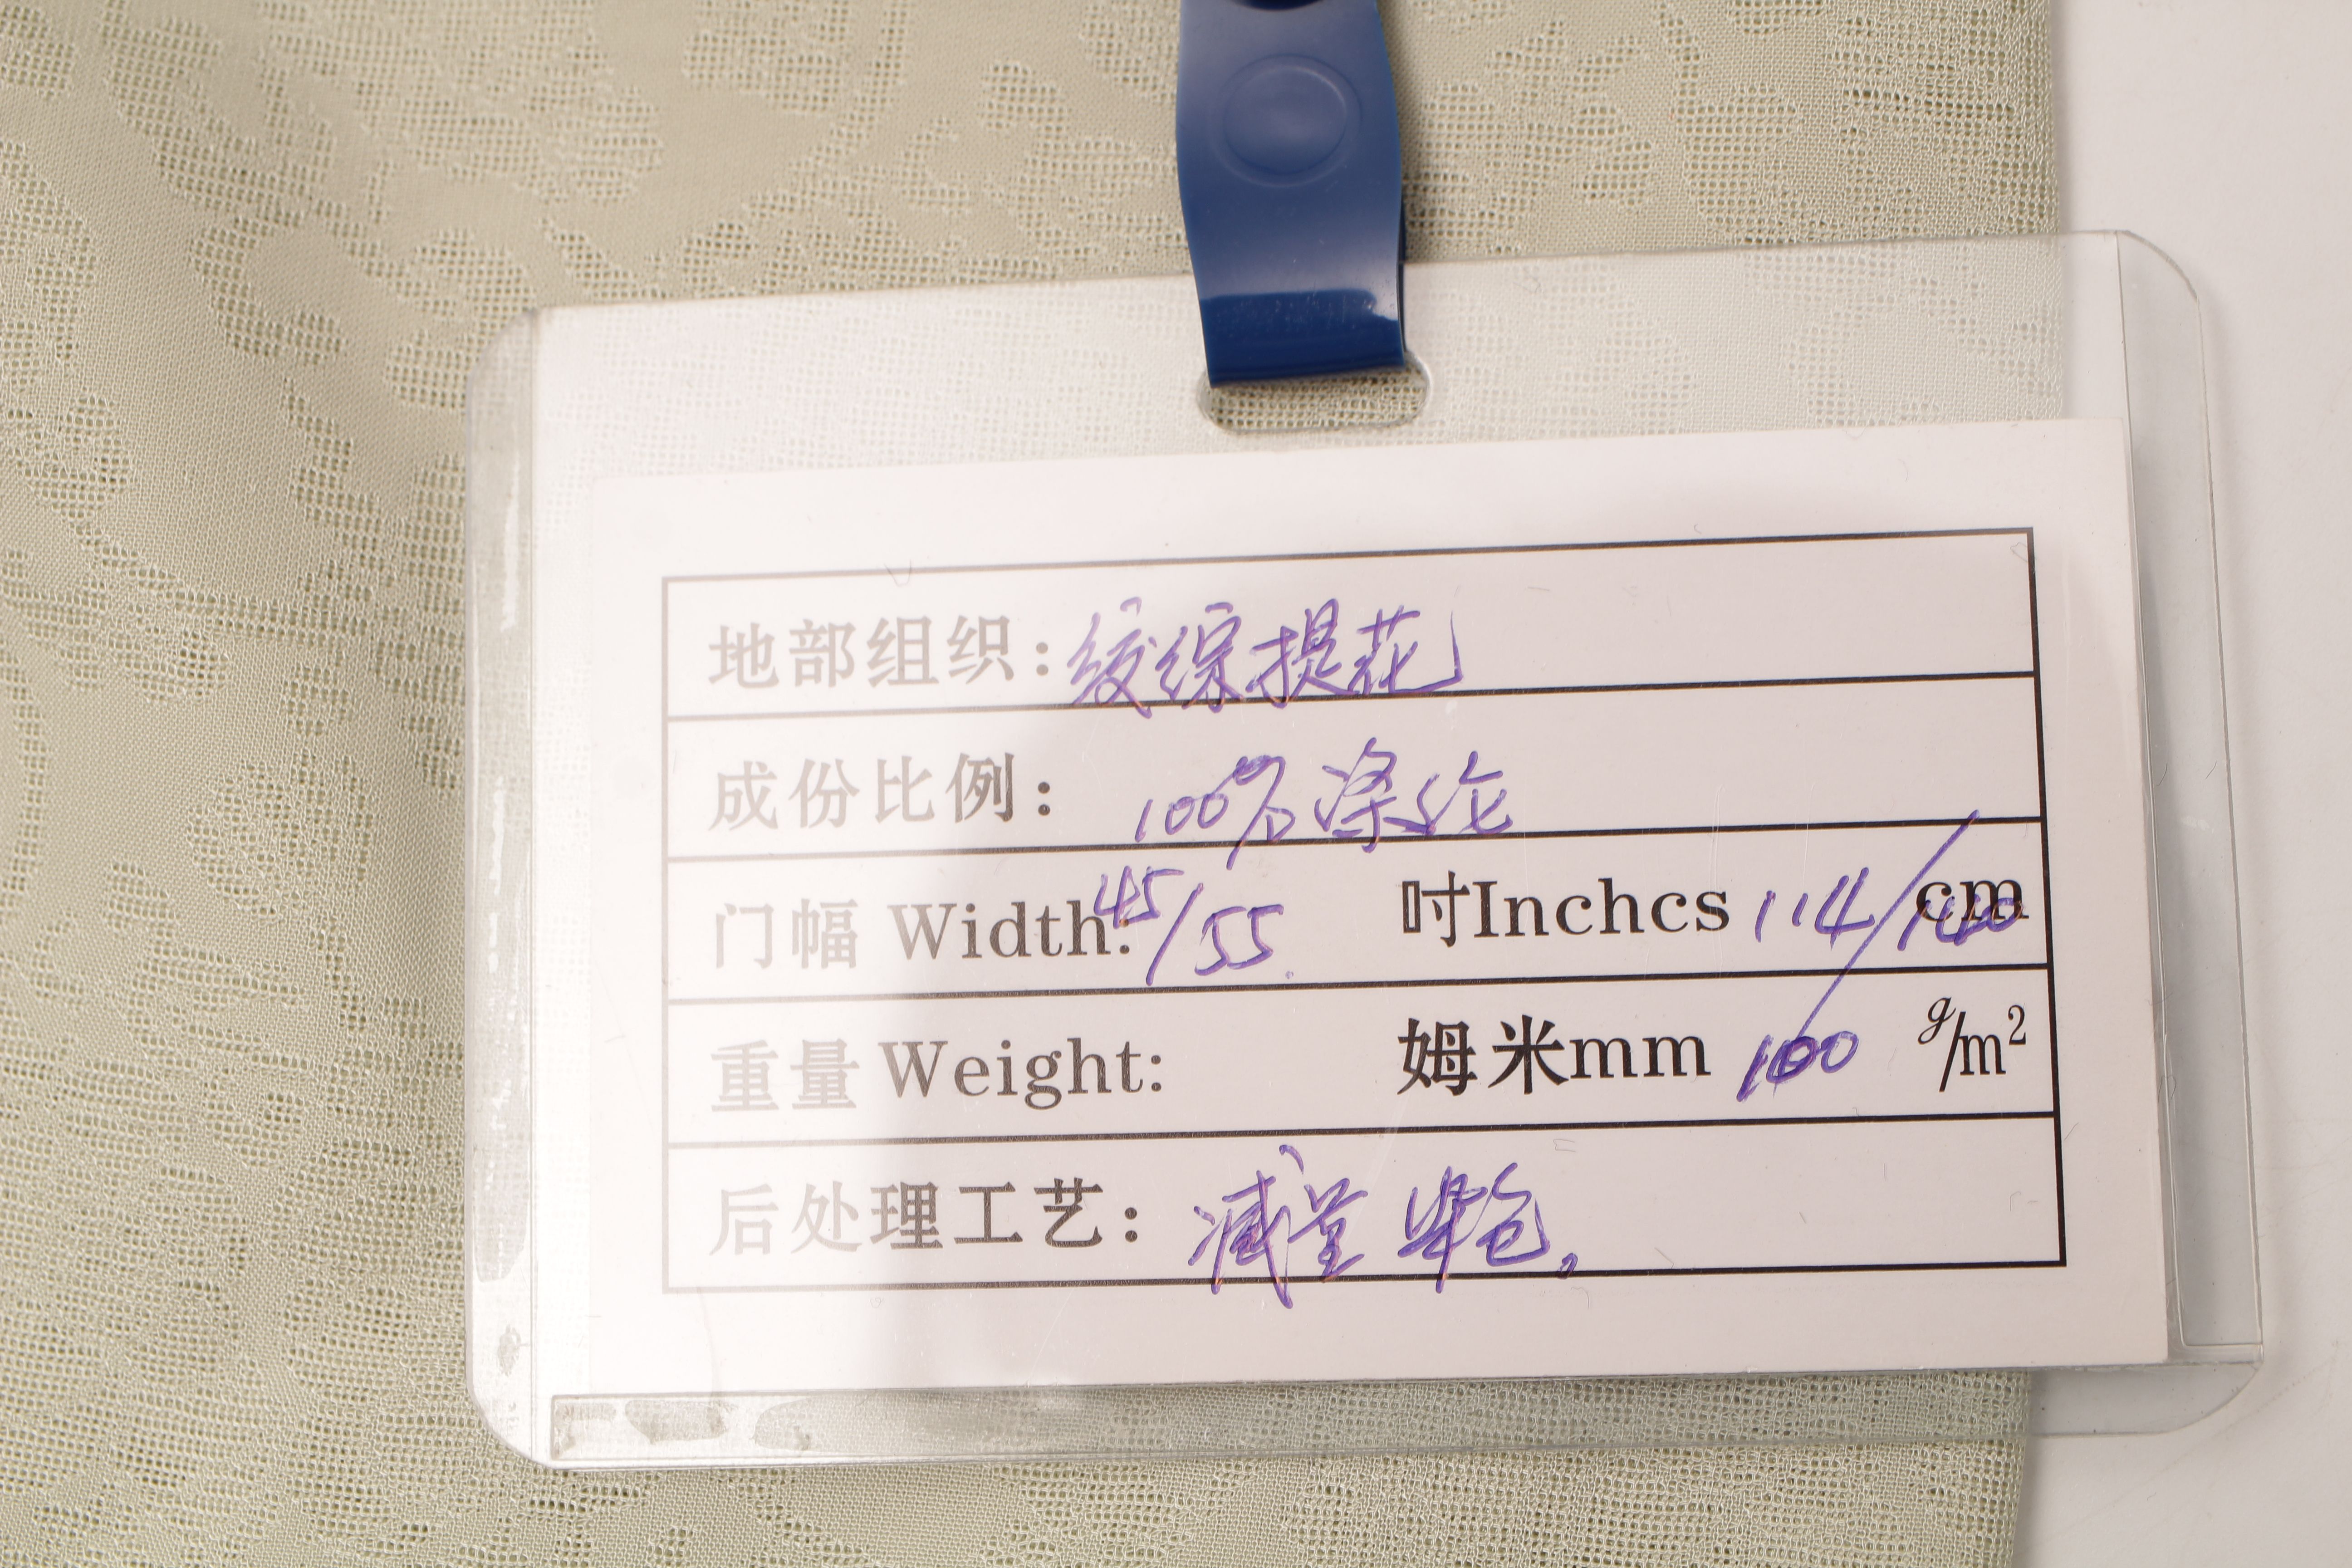 地部组织：绞综提花
成份比例： 100% 涤纶
门幅 Width: 45/55 吋Inchcs 114/140 cm
重量 Weight: 姆米mm 100 g/m²
后处理工艺： 减量 染色。